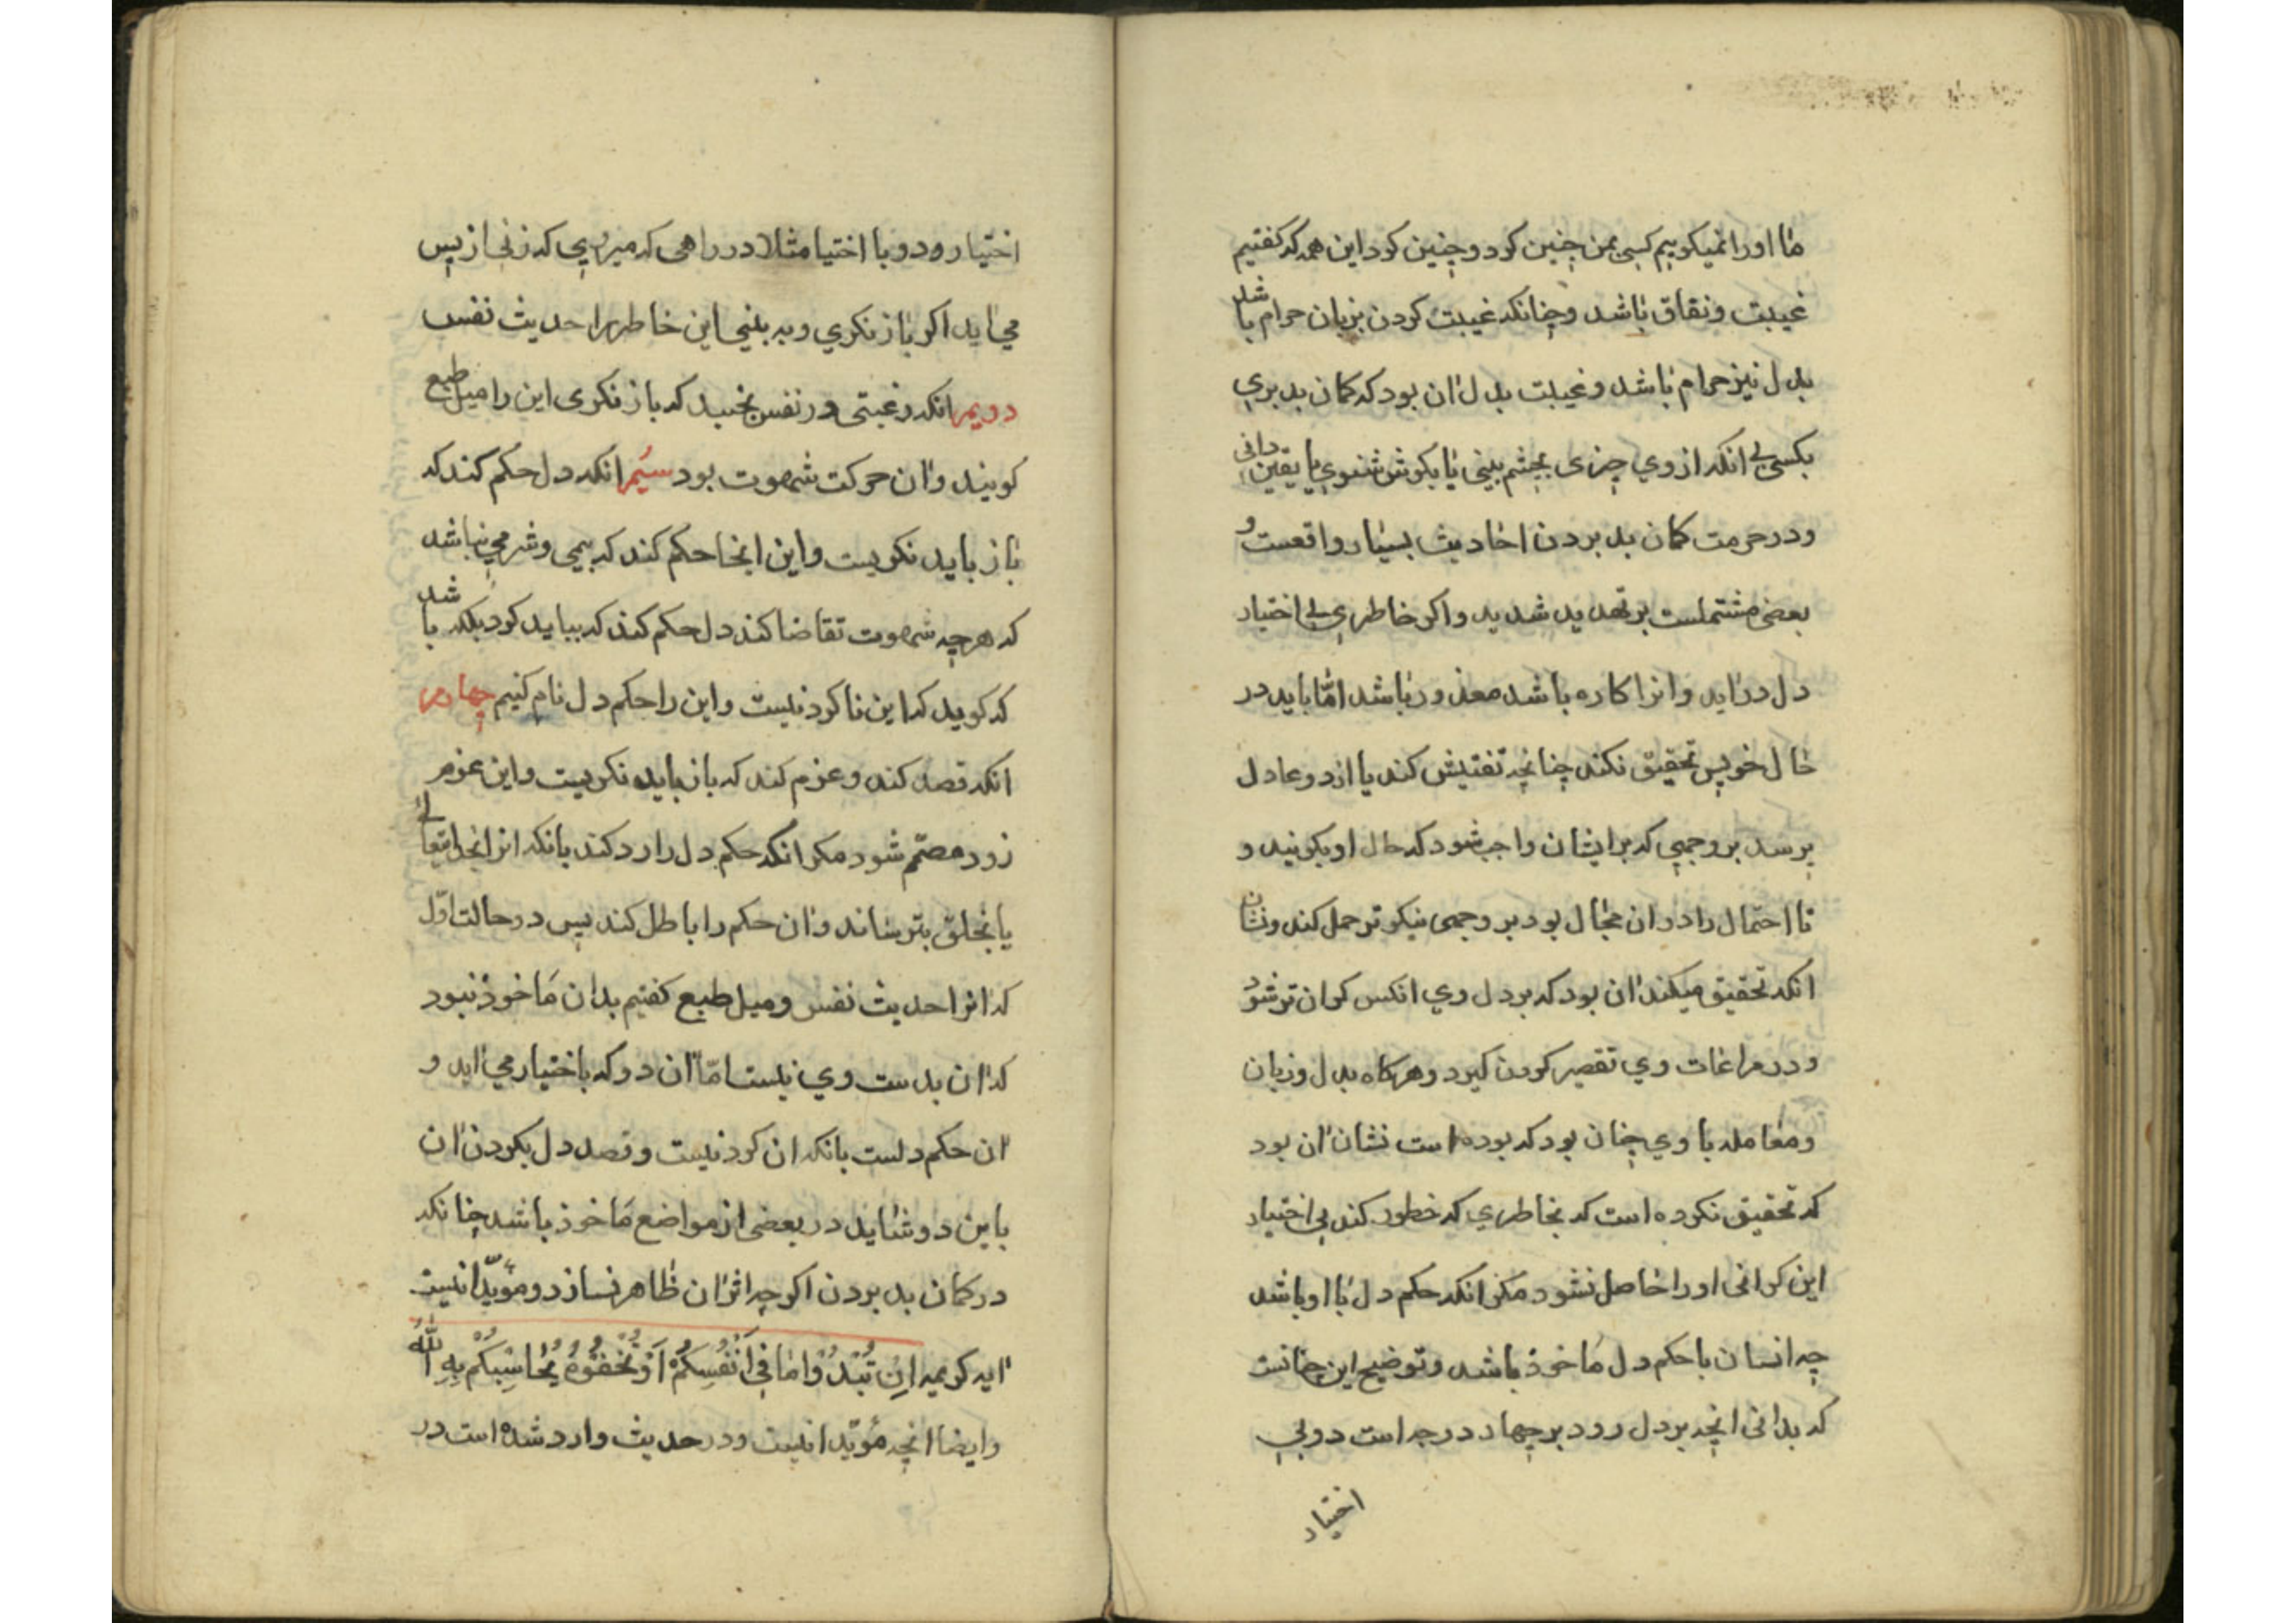 ما او را نمیکوییم کسی بمن چنین کرد و چنین کرد این همه که کفتیم
غیبت و نفاق باشد و چنانکه غیبت کردن بزبان حرام باشد
بدل نیز حرام باشد و غیبت بدل ان بود که کمان بد بری
بکسی بی انکه از وی چیزی بچشم بینی یا بکوش شنوی یا یقین دانی
و در حرمت کمان بد بردن احادیث بسیار واقعست و
بعضی مشتملست بر تهدید شدید و اکر خاطری بی اختیار
دل در اید و انرا کاره باشد معذور باشد امّا باید در
حال خویش تحقیق نکند چنانچه تفتیش کند یا از دو عادل
پرسد بر وجهی که بر ایشان واجب شود که حال او بکویند و
تا احتمال را در ان مجال بود بر وجهی نیکوتر حمل کند و نشان
انکه تحقیق میکند ان بود که بر دل وی انکس کران تر شود
و در مراعات وی تقصیر کردن کیرد و هر کاه بدل و زبان
و معامله با وی چنان بود که بوده است نشان ان بود
که تحقیق نکرده است که بخاطری که خطور کند بی اختیار
این کرانی او را حاصل نشود مکر انکه حکم دل با او باشد
چه انسان با حکم دل مَاخوذ باشد و توضیح این چنانست
که بدانی انچه بر دل رود بر چهار درجه است دو بی
اختیار
اختیار رود و با اختیا مثلا در راهی که میروی که زنی از پس
می اید اکر باز نکری و به بینی این خاطر را حدیث نفس
دویم انکه رغبتی در نفس بجنبد که باز نکری این را میل طبع
کویند و ان حرکت شهوت بود سیُم انکه دل حکم کند که
باز باید نکریست و این انجا حکم کند که بیمی و شرمی نباشد
که هر چه شهوت تقاضا کند دل حکم کند که بیاید کرد بلکه باشد
که کوید که این ناکردنیست و این را حکم دل نام کنیم چهارم
انکه قصد کند و عزم کند که باز باید نکریست و این عزم
زود مصمّم شود مکر انکه حکم دل را رد کند بانکه از خدایتعالی
یا بخلق بترساند و ان حکم را باطل کند پس در حالت اوّل
که انرا حدیث نفس و میل طبع کفتیم بدان مَاخوذ نبود
که ان بدست وی نیست امّا ان دو که باختیار می اید و
ان حکم دلست بانکه ان کردنیست و قصد دل بکردن ان
باین دو شاید در بعضی از مواضع مَاخوذ باشد چنانکه
در کمان بد بردن اکر چه اثر ان ظاهر نسازد و مؤیّد انیست
ایه کریمه اِن تُبْدُوا مٰا فِی اَنْفُسِکُمْ اَوْ تُخْفُوهُ یُحٰاسِبْکُمْ بِهِ اللّٰهُ
و ایضا انچه مؤیّد انیست و در حدیث وارد شده است در